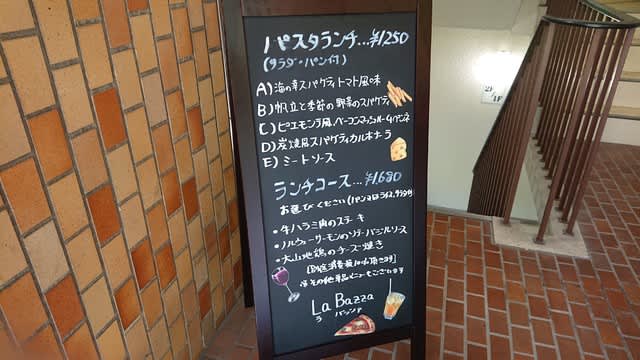 パスタランチ…¥1250
(サラダ・パン付)
A)海の幸スパゲティトマト風味
B)帆立と季節の野菜のスパゲティ
C)ピエモンテ風、ベーコンマッシュルームペンネ
D)炭焼風スパゲティカルボナーラ
E)ミートソース
ランチコース…¥1,680
お選びください(パン又はライス,サラダ付)
・牛ハラミ肉のステーキ
・ノルウェーサーモンのソテーバジルソース
・大山地鶏のチーズ焼き
その他単品メニューもございます
La Bazza
ラ バッツァ
2F
1F